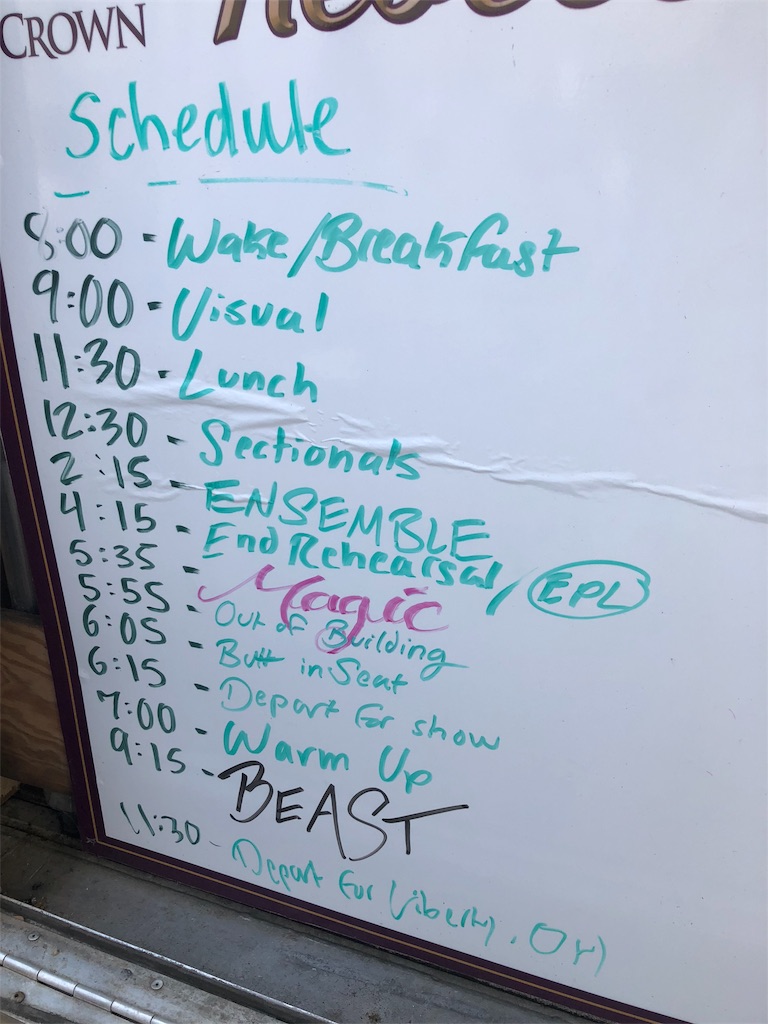 CROWN
Schedule
8:00 - Wake/Breakfast
9:00 - Visual
11:30 - Lunch
12:30 - Sectionals
2:15 - ENSEMBLE
4:15 - End Rehearsal/EPL
5:35 - Magic
5:55 - Out of Building
6:05 - Butt in Seat
6:15 - Depart for show
7:00 - Warm Up
9:15 - BEAST
11:30 - Depart for Liberty,